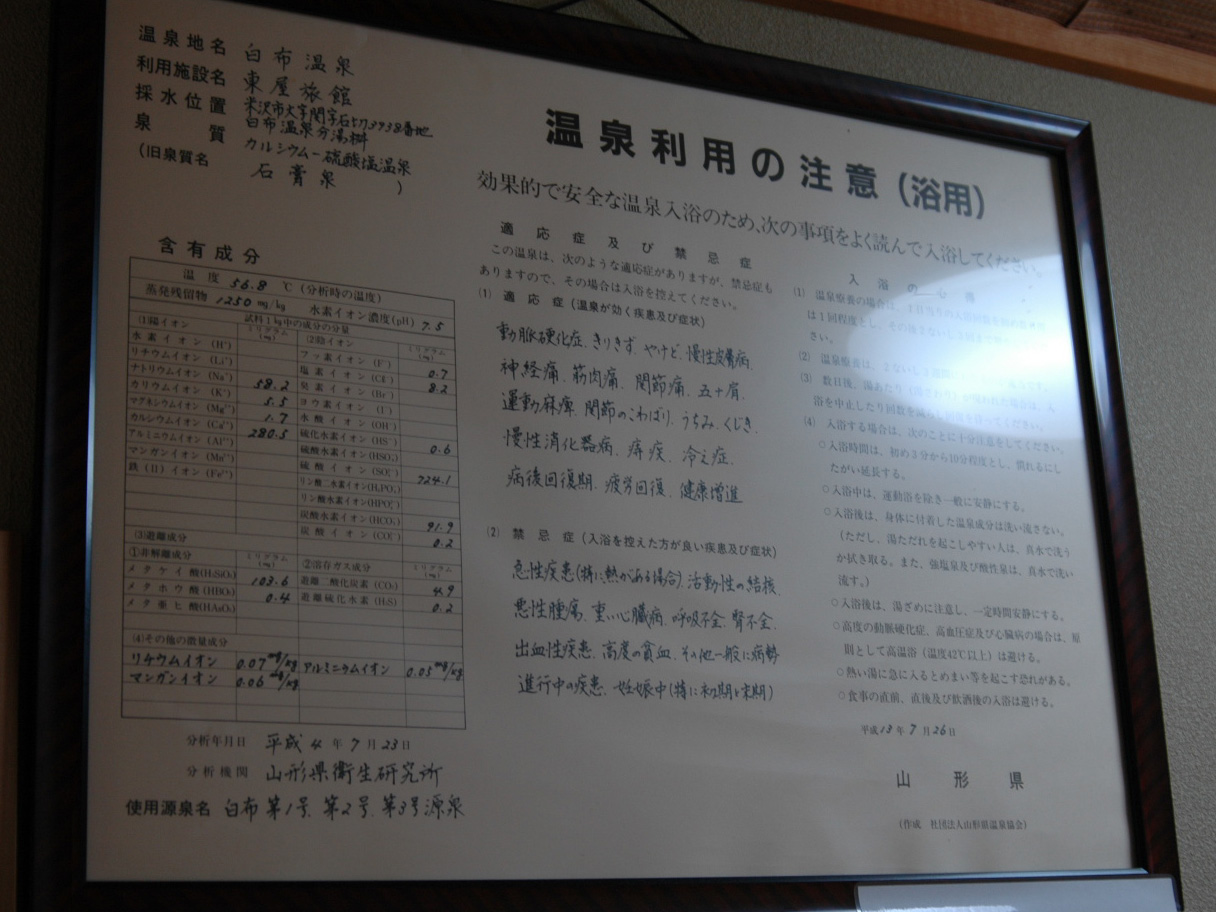 温泉地名 白布温泉
利用施設名 東屋旅館
採水位置 米沢市大字関字石よけ3938番地
白布温泉分湯桝
泉質 カルシウム-硫酸塩温泉
(旧泉質名 石膏泉)
温泉利用の注意(浴用)
効果的で安全な温泉入浴のため、次の事項をよく読んで入浴してください。
含有成分
温度 56.8 ℃(分析時の温度)
蒸発残留物 1250 mg/kg 水素イオン濃度(pH) 7.5
試料1kg中の成分の分量
(1)陽イオン ミリグラム(mg) (2)陰イオン ミリグラム(mg)
水素イオン(H⁺) フッ素イオン(F⁻) 0.7
リチウムイオン(Li⁺) 塩素イオン(Cl⁻) 8.2
ナトリウムイオン(Na⁺) 58.2 臭素イオン(Br⁻)
カリウムイオン(K⁺) 5.5 ヨウ素イオン(I⁻)
マグネシウムイオン(Mg²⁺) 1.7 水酸イオン(OH⁻)
カルシウムイオン(Ca²⁺) 280.5 硫化水素イオン(HS⁻) 0.6
アルミニウムイオン(Al³⁺) 硫酸水素イオン(HSO₄⁻)
マンガンイオン(Mn²⁺) 硫酸イオン(SO₄²⁻) 724.1
鉄(II)イオン(Fe²⁺) リン酸二水素イオン(H₂PO₄⁻)
リン酸水素イオン(HPO₄²⁻)
炭酸水素イオン(HCO₃⁻) 91.9
炭酸イオン(CO₃²⁻) 0.2
(3)遊離成分
①非解離成分 ミリグラム(mg) ②溶存ガス成分 ミリグラム(mg)
メタケイ酸(H₂SiO₃) 103.6 遊離二酸化炭素(CO₂) 4.9
メタホウ酸(HBO₂) 0.4 遊離硫化水素(H₂S) 0.2
メタ亜ヒ酸(HAsO₂)
(4)その他の微量成分
リチウムイオン 0.07mg/kg アルミニウムイオン 0.05mg/kg
マンガンイオン 0.06mg/kg
分析年月日 平成4年7月23日
分析機関 山形県衛生研究所
使用源泉名 白布第1号、第2号、第3号源泉
適応症及び禁忌症
この温泉は、次のような適応症がありますが、禁忌症も
ありますので、その場合は入浴を控えてください。
(1) 適応症(温泉が効く疾患及び症状)
動脈硬化症、きりきず、やけど、慢性皮膚病、
神経痛、筋肉痛、関節痛、五十肩、
運動麻痺、関節のこわばり、うちみ、くじき、
慢性消化器病、痔疾、冷え症、
病後回復期、疲労回復、健康増進
(2) 禁忌症(入浴を控えた方が良い疾患及び症状)
急性疾患(特に熱がある場合)、活動性の結核、
悪性腫瘍、重い心臓病、呼吸不全、腎不全、
出血性疾患、高度の貧血、その他一般に病勢
進行中の疾患、妊娠中(特に初期と末期)
入浴の心得
(1) 温泉療養の場合は、
は1回程度とし、その後2ないし
さい。
(2) 温泉療養は、2ないし3週間
(3) 数日後、湯あたり
浴を中止したり回数を減らし
(4) 入浴する場合は、次のことに十分注意をしてください。
○入浴時間は、初め3分から10分程度とし、慣れるにし
たがい延長する。
○入浴中は、運動浴を除き一般に安静にする。
○入浴後は、身体に付着した温泉成分は洗い流さない。
(ただし、湯ただれを起こしやすい人は、真水で洗う
か拭き取る。また、強塩泉及び酸性泉は、真水で洗い
流す。)
○入浴後は、湯ざめに注意し、一定時間安静にする。
○高度の動脈硬化症、高血圧症及び心臓病の場合は、原
則として高温浴(温度42℃以上)は避ける。
○熱い湯に急に入るとめまい等を起こす恐れがある。
○食事の直前、直後及び飲酒後の入浴は避ける。
平成13年7月26日
山形県
(作成 社団法人山形県温泉協会)